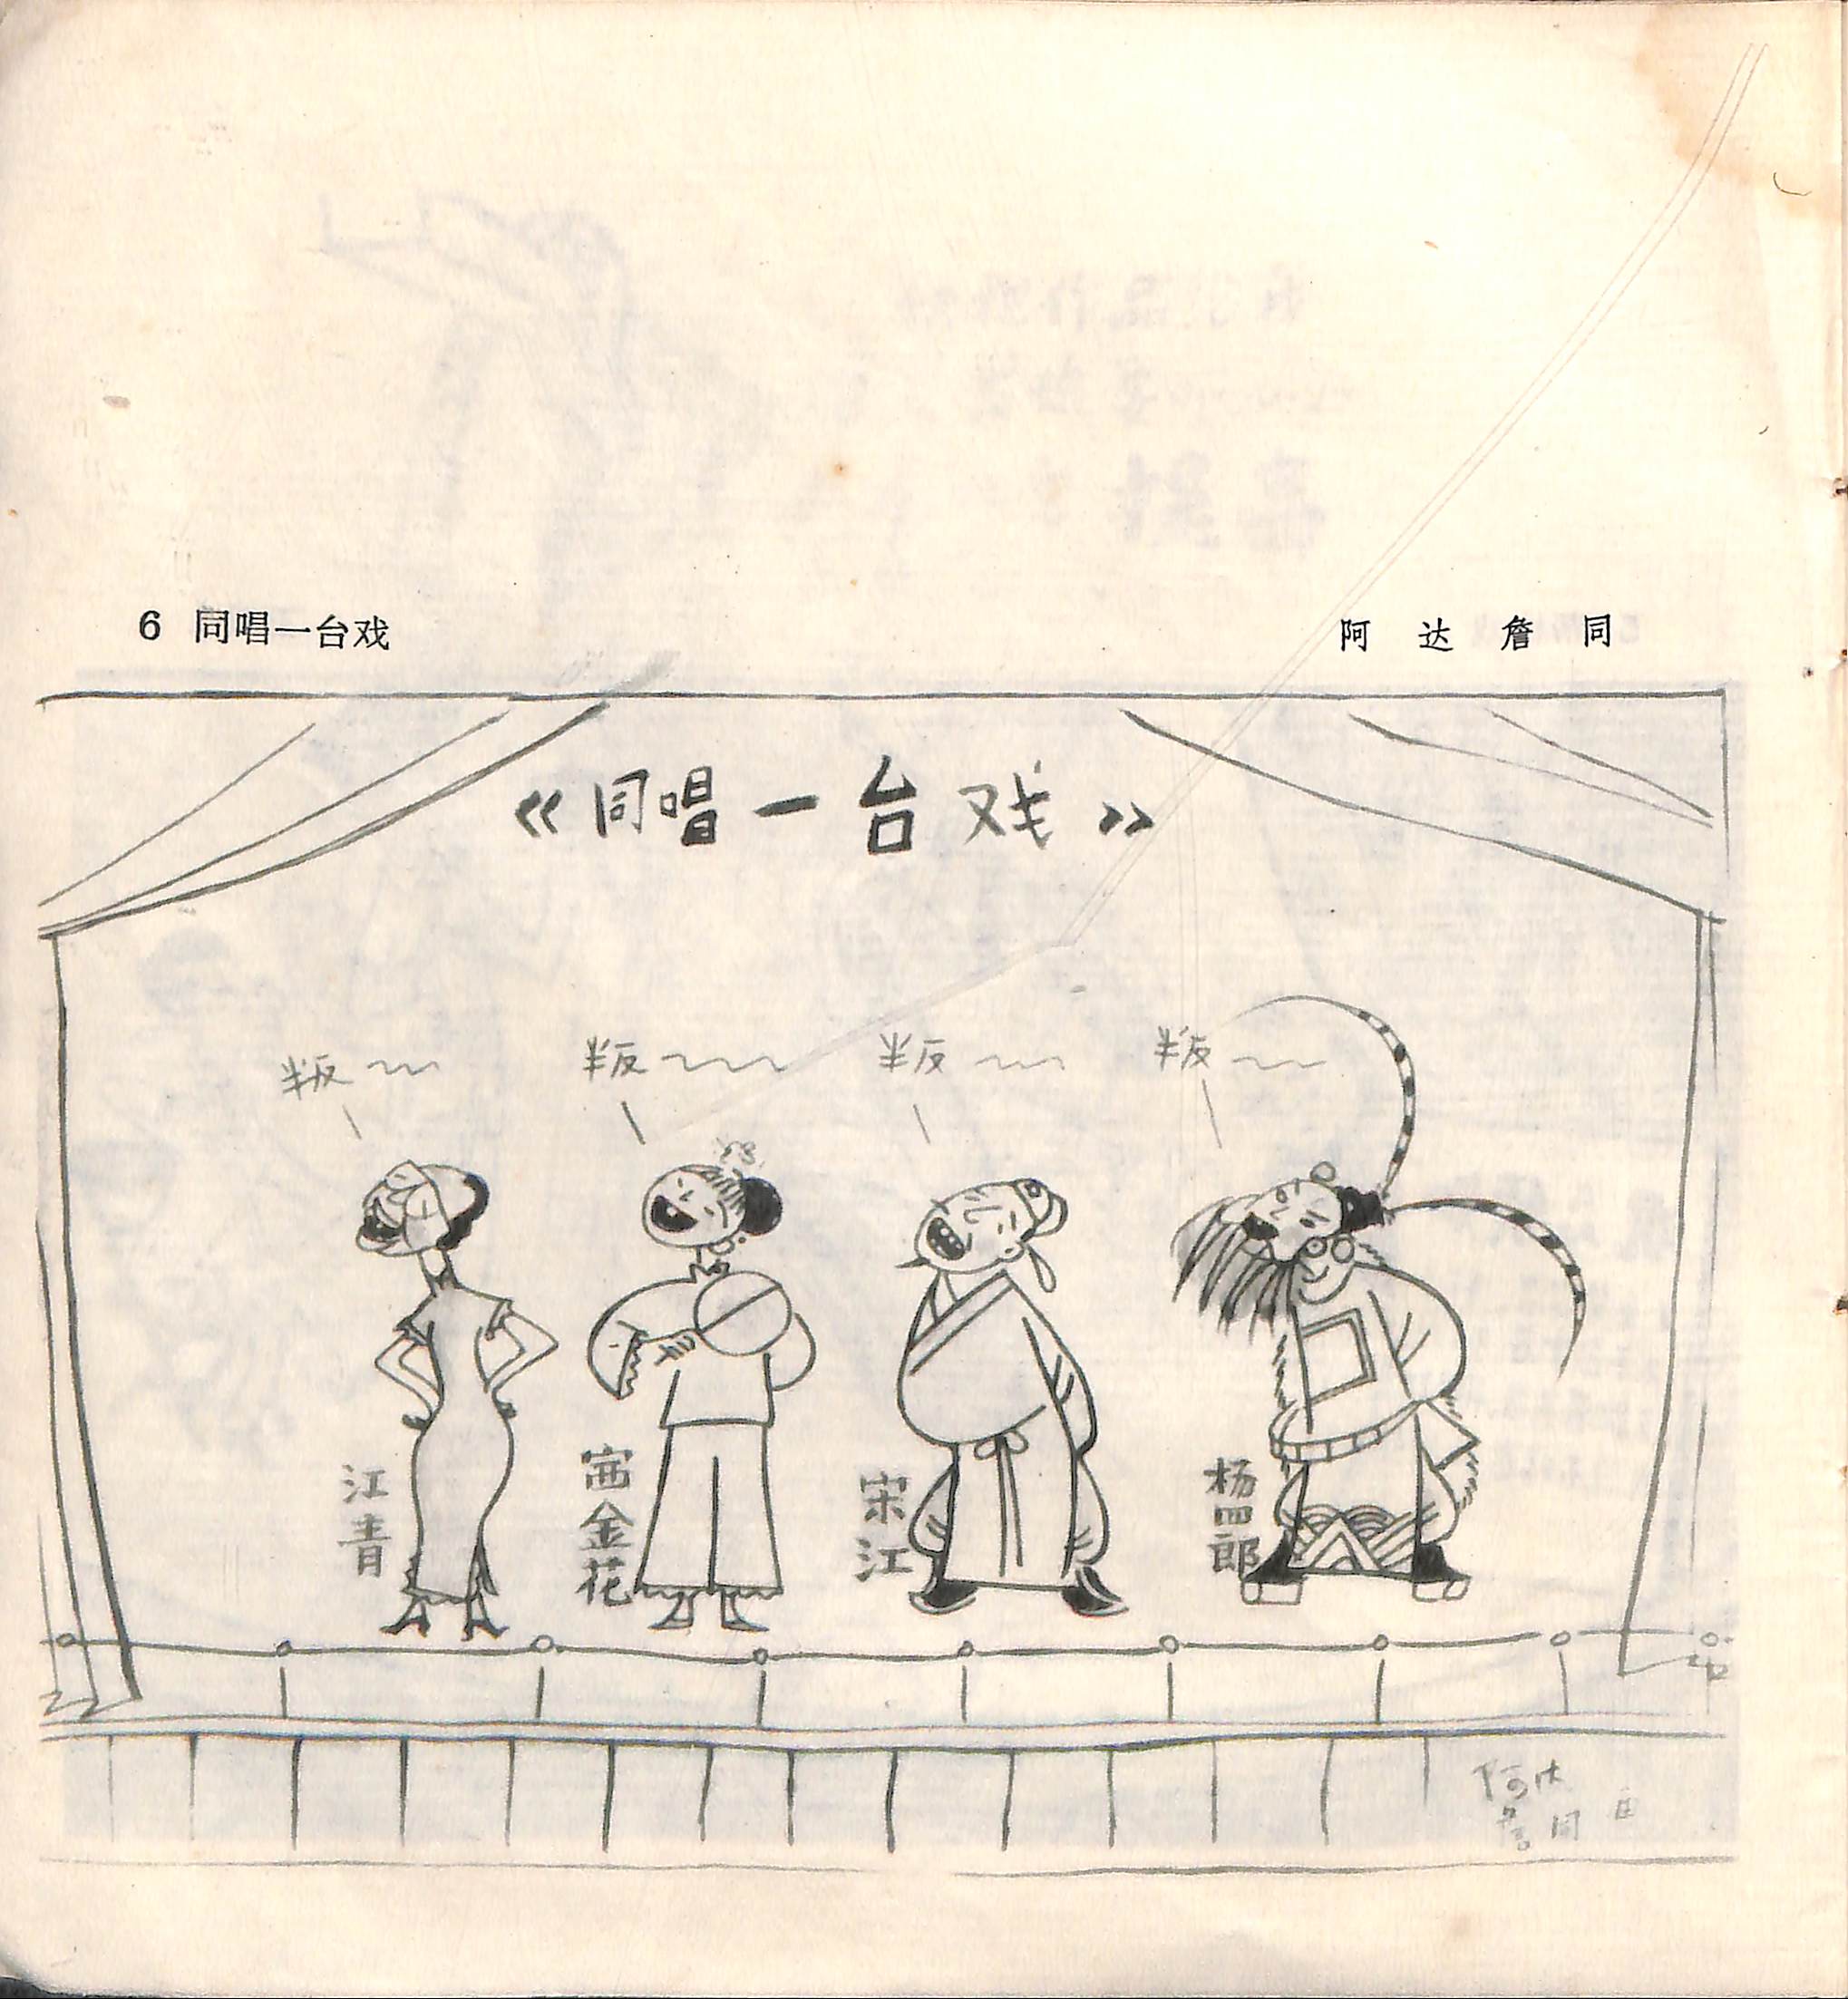 6 同唱一台戏
阿达 詹同
《同唱一台戏》
叛
叛
叛
叛
江青
赛金花
宋江
杨四郎
阿达
詹同 画